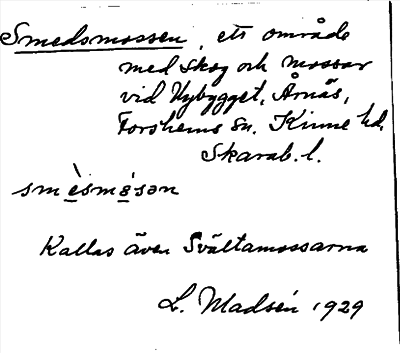 Smedsmossen, ett område
med skog och mossar
vid Nybygget, Årnäs,
Forshems sn. Kinne hd.
Skarab. l.
smèsmåsən
Kallas även Svältamossarna
L. Madsén 1929